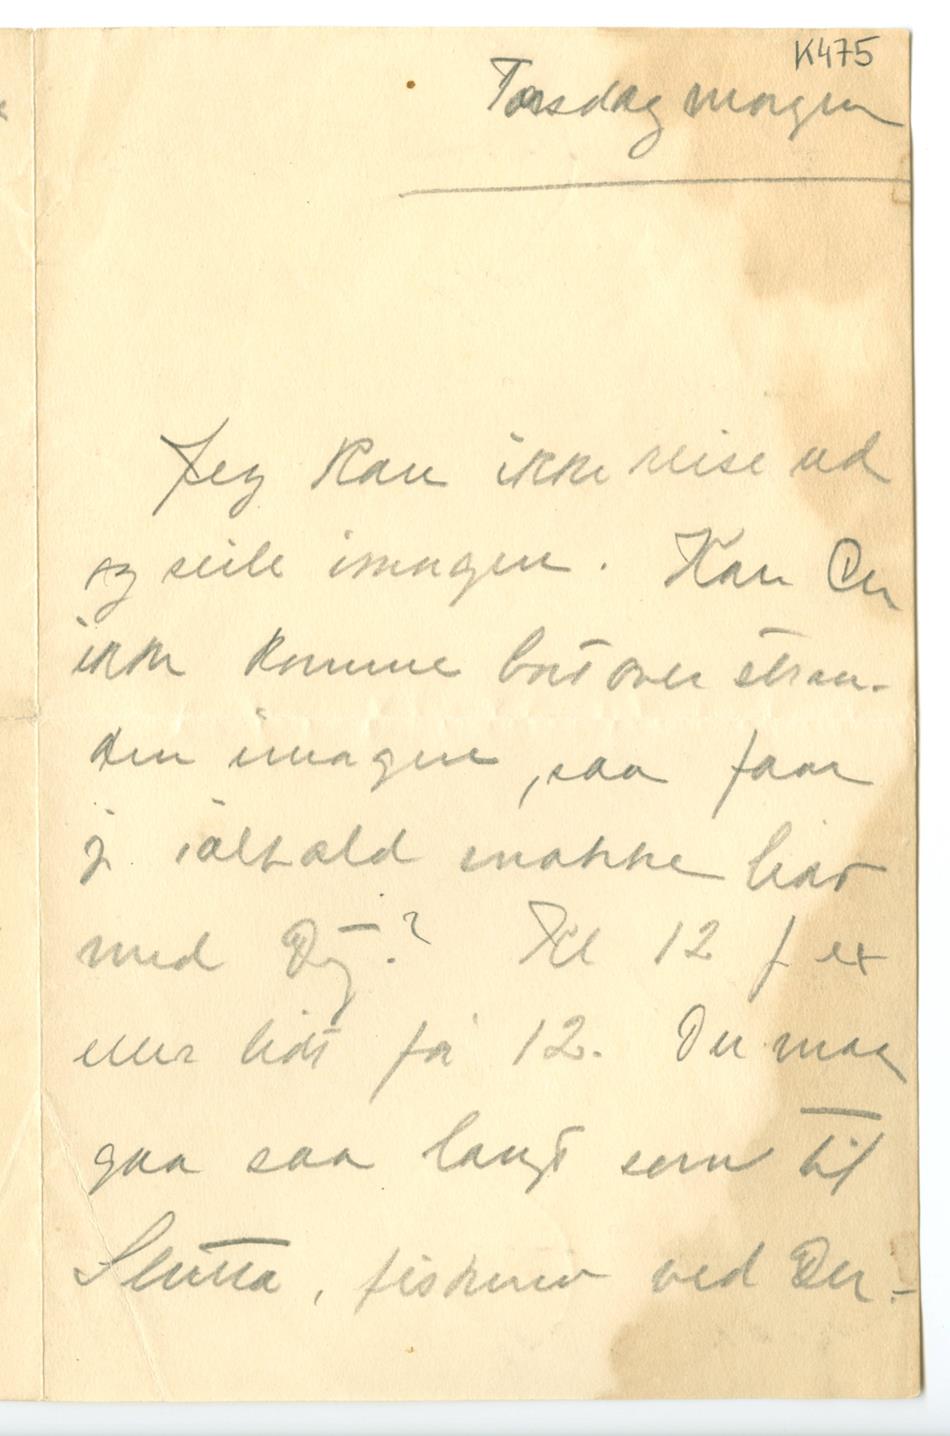 K475
Torsdag morgen
Jeg kan ikke reise ud
og seile imorgen. Kan Du
ikke komme bortover stran-
den imorgen, saa faar
j. ialfald snakke lidt
med Dig? Kl 12 f ex
eller lidt før 12. Du maa
gaa saa langt som til
Slutta, fiskeren ved Der-